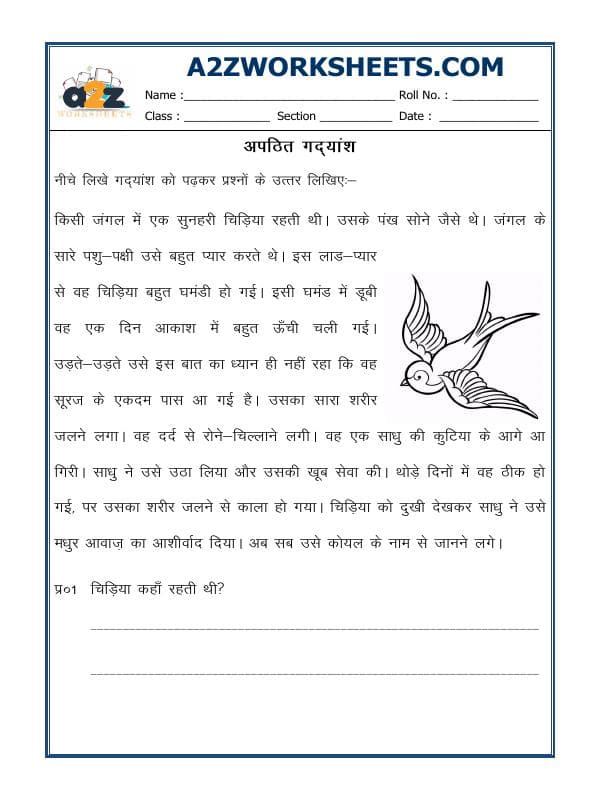 A2ZWORKSHEETS.COM
a2z
WORKSHEETS
Name :______________________________ Roll No. : ____________
Class : ____________ Section __________ Date : ______________
अपठित गद्यांश
नीचे लिखे गद्यांश को पढ़कर प्रश्नों के उत्तर लिखिएः–
किसी जंगल में एक सुनहरी चिड़िया रहती थी। उसके पंख सोने जैसे थे। जंगल के
सारे पशु–पक्षी उसे बहुत प्यार करते थे। इस लाड–प्यार
से वह चिड़िया बहुत घमंडी हो गई। इसी घमंड में डूबी
वह एक दिन आकाश में बहुत ऊँची चली गई।
उड़ते–उड़ते उसे इस बात का ध्यान ही नहीं रहा कि वह
सूरज के एकदम पास आ गई है। उसका सारा शरीर
जलने लगा। वह दर्द से रोने–चिल्लाने लगी। वह एक साधु की कुटिया के आगे आ
गिरी। साधु ने उसे उठा लिया और उसकी खूब सेवा की। थोड़े दिनों में वह ठीक हो
गई, पर उसका शरीर जलने से काला हो गया। चिड़िया को दुखी देखकर साधु ने उसे
मधुर आवाज़ का आशीर्वाद दिया। अब सब उसे कोयल के नाम से जानने लगे।
प्र०1 चिड़िया कहाँ रहती थी?